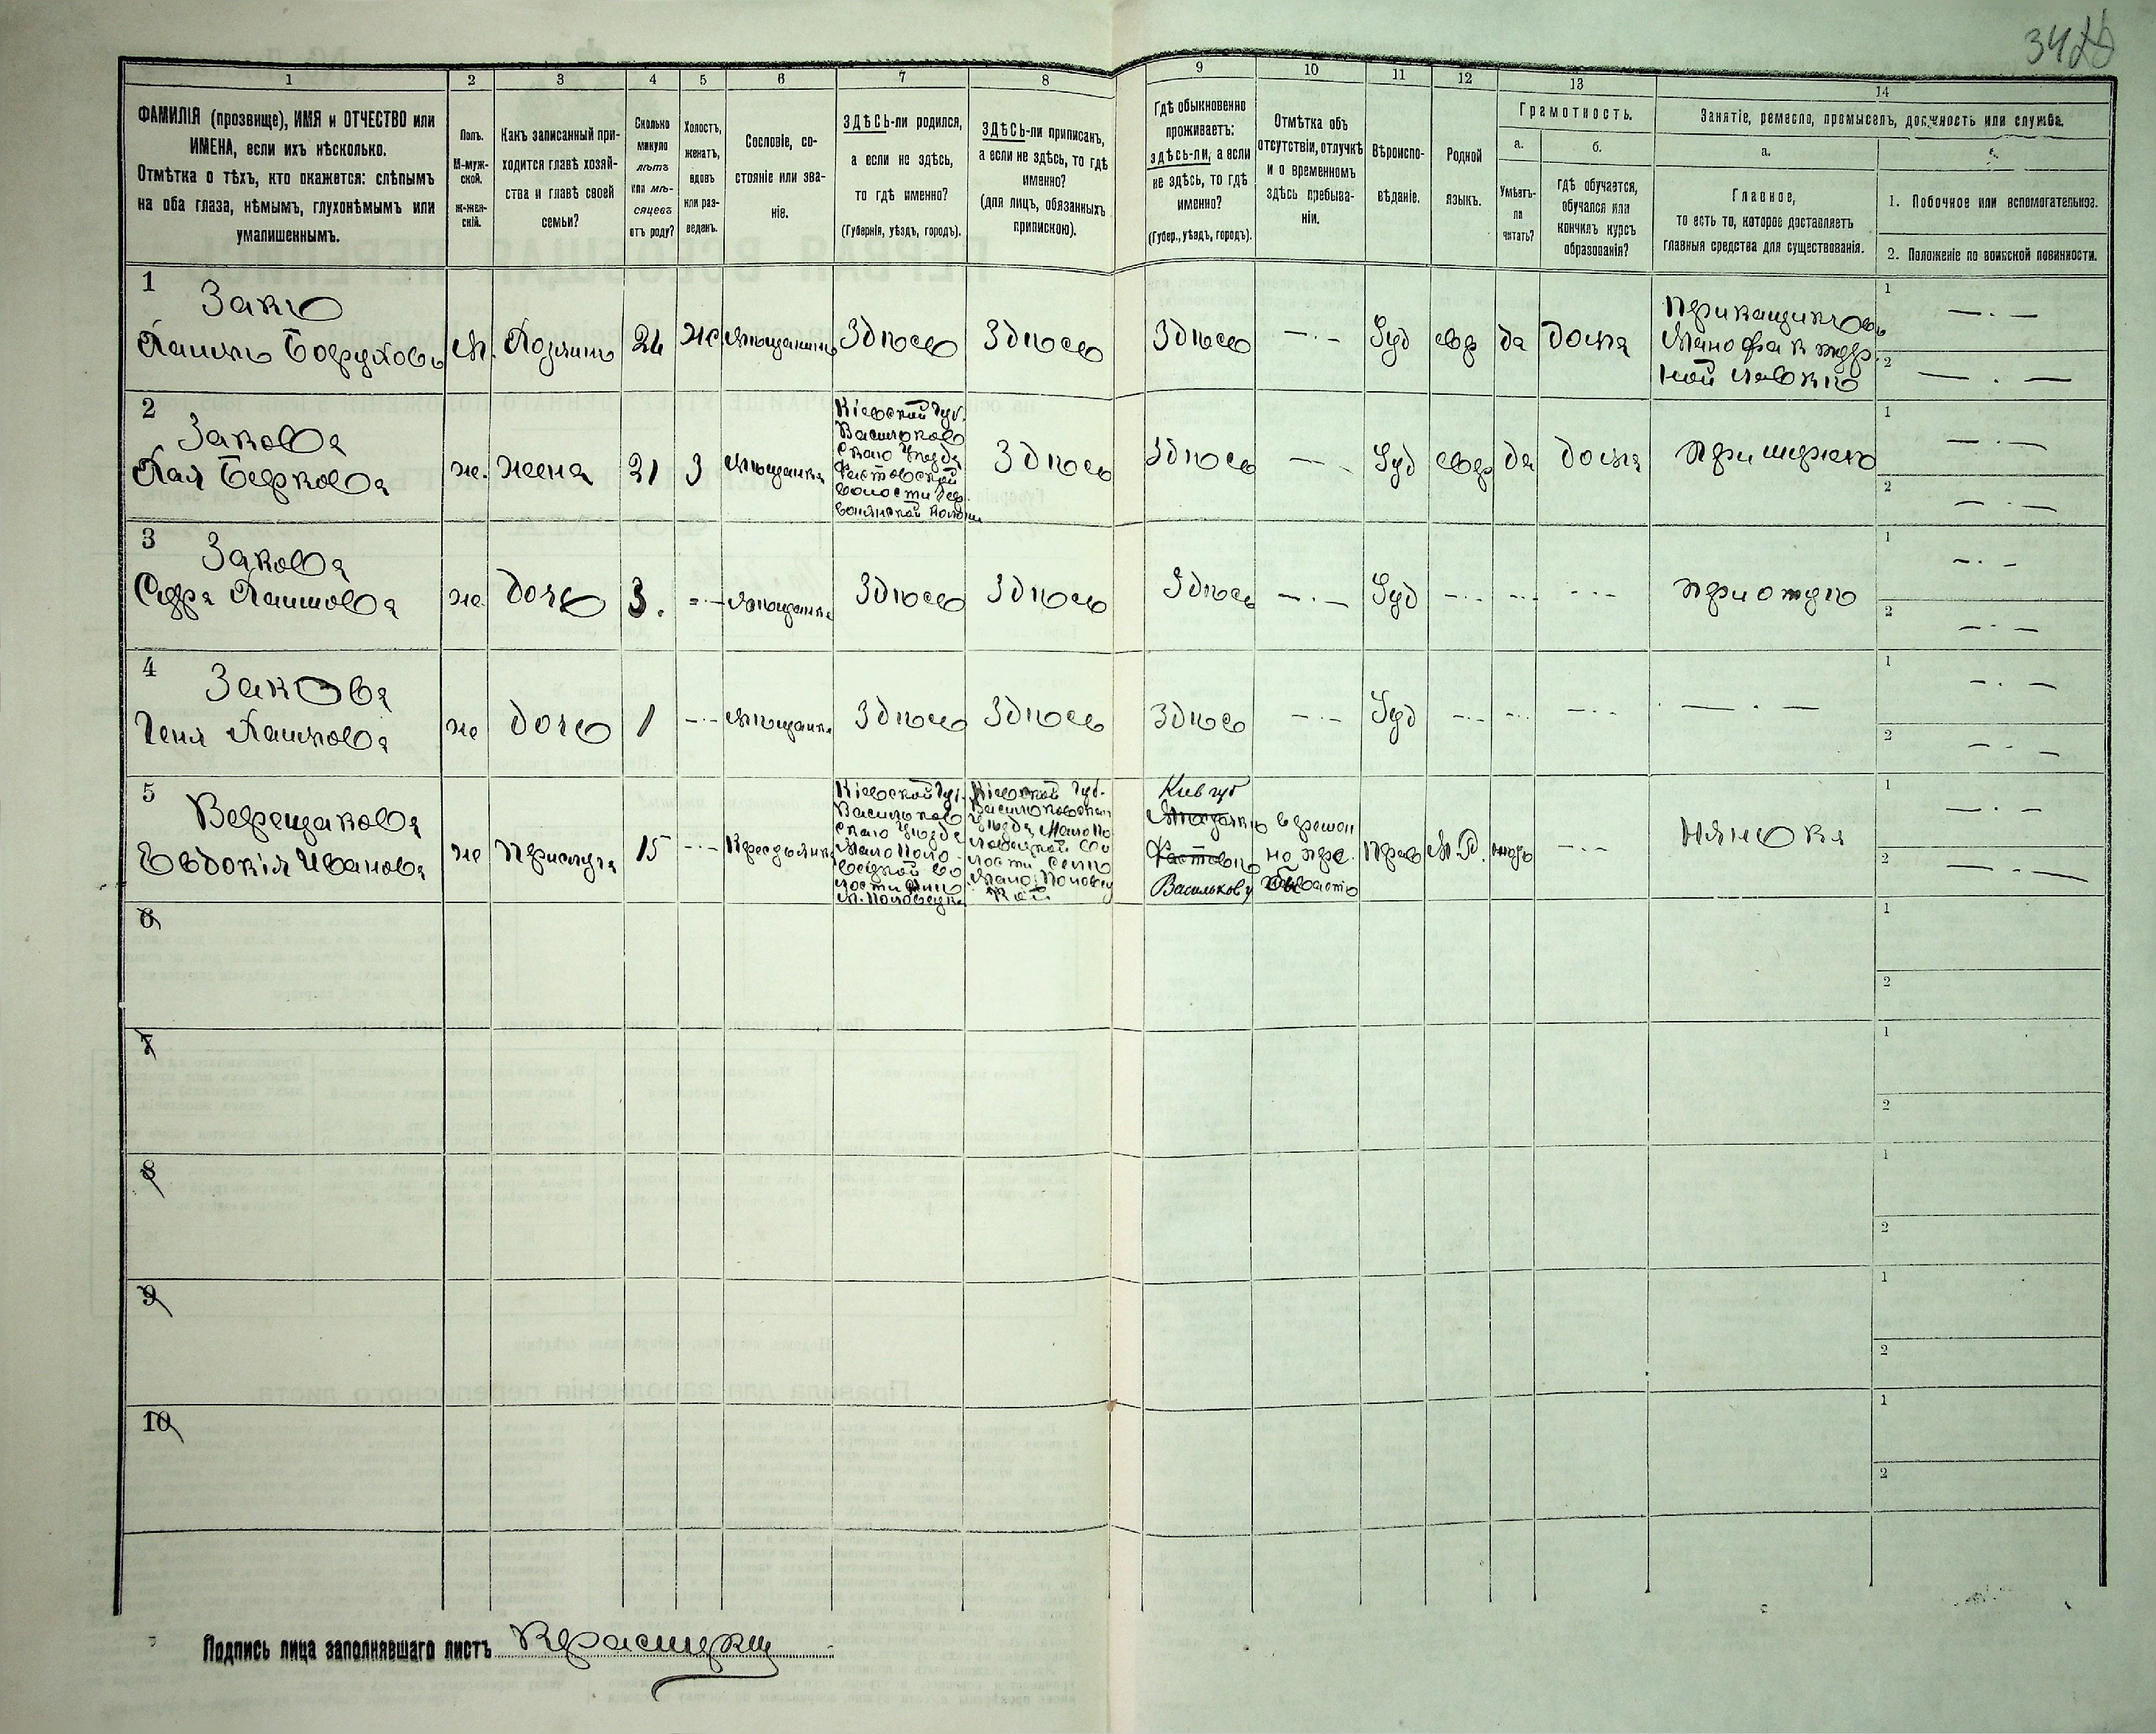 1
2
3
4
5
6
7
8
9
10
11
12
13
14
ФАМИЛІЯ (прозвище), ИМЯ и ОТЧЕСТВО или
ИМЕНА, если ихъ нѣсколько.
Отмѣтка о тѣхъ, кто окажется: слѣпымъ
на оба глаза, нѣмымъ, глухонѣмымъ или
умалишеннымъ.
Полъ.
М-муж-
ской.
Ж-жен-
скій.
Какъ записанный при-
ходится главѣ хозяй-
ства и главѣ своей
семьи?
Сколько
минуло
лѣтъ
или мѣ-
сяцевъ
отъ роду?
Холостъ,
женатъ,
вдовъ
или раз-
веденъ.
Сословіе, со-
стояніе или зва-
ніе.
ЗДѢСЬ-ли родился,
а если не здѣсь,
то гдѣ именно?
(Губернія, уѣздъ, городъ).
ЗДѢСЬ-ли приписанъ,
а если не здѣсь, то гдѣ
именно?
(для лицъ, обязанныхъ
припискою).
Гдѣ обыкновенно
проживаетъ:
здѣсь-ли, а если
не здѣсь, то гдѣ
именно?
(Губер., уѣздъ, городъ).
Отмѣтка объ
отсутствіи, отлучкѣ
и о временномъ
здѣсь пребыва-
ніи.
Вѣроиспо-
вѣданіе.
Родной
языкъ.
Грамотность.
а.
Умѣетъ-
ли
читать?
б.
гдѣ обучается,
обучался или
кончилъ курсъ
образованія?
Занятіе, ремесло, промыселъ, должность или служба.
а.
Главное,
то есть то, которое доставляетъ
главныя средства для существованія.
1. Побочное или вспомогательное.
2. Положеніе по воинской повинности.
1
Закъ
М.
24
Мѣщанинъ
Здѣсь
Здѣсь
Здѣсь
— · —
Іуд
евр
да
дома
Мануфактур
ной лавкѣ
1 — · —
2 — · —
2
Закова
Хая Беркова
ж.
жена
21
З
Мѣщанка
Кіевской Губ.
Васильков
скаго Уѣзда
Фастовской
волости
Здѣсь
Здѣсь
— · —
Іуд
евр
да
дома
При мужѣ
1 — · —
2 — · —
3
Закова
ж.
дочь
3.
— · —
Мѣщанка
Здѣсь
Здѣсь
Здѣсь
— · —
Іуд
— · —
— · —
— · —
При отцѣ
1 — · —
2 — · —
4
Закова
ж
дочь
1
— · —
Мѣщанка
Здѣсь
Здѣсь
Здѣсь
— · —
Іуд
— · —
— · —
— · —
— · —
1 — · —
2 — · —
5
Верещакова
Евдокія Иванова
ж
Прислуга
15
— · —
Крестьянка
Кіевской Губ.
Васильков
скаго Уѣзда
Мало Поло
вецкой во
лости
М. Половецка
Кіевской Губ.
Васильковскаго
Уѣзда, Мало По
ловецкой Во
лости Селѣ
Мало Половец
кой
Киев губ
Васильков у
времен
но пре
Прав
М. Р.
— · —
нянька
1 — · —
2 — · —
6
1
2
7
1
2
8
1
2
9
1
2
10
1
2
Подпись лица заполнявшаго листъ